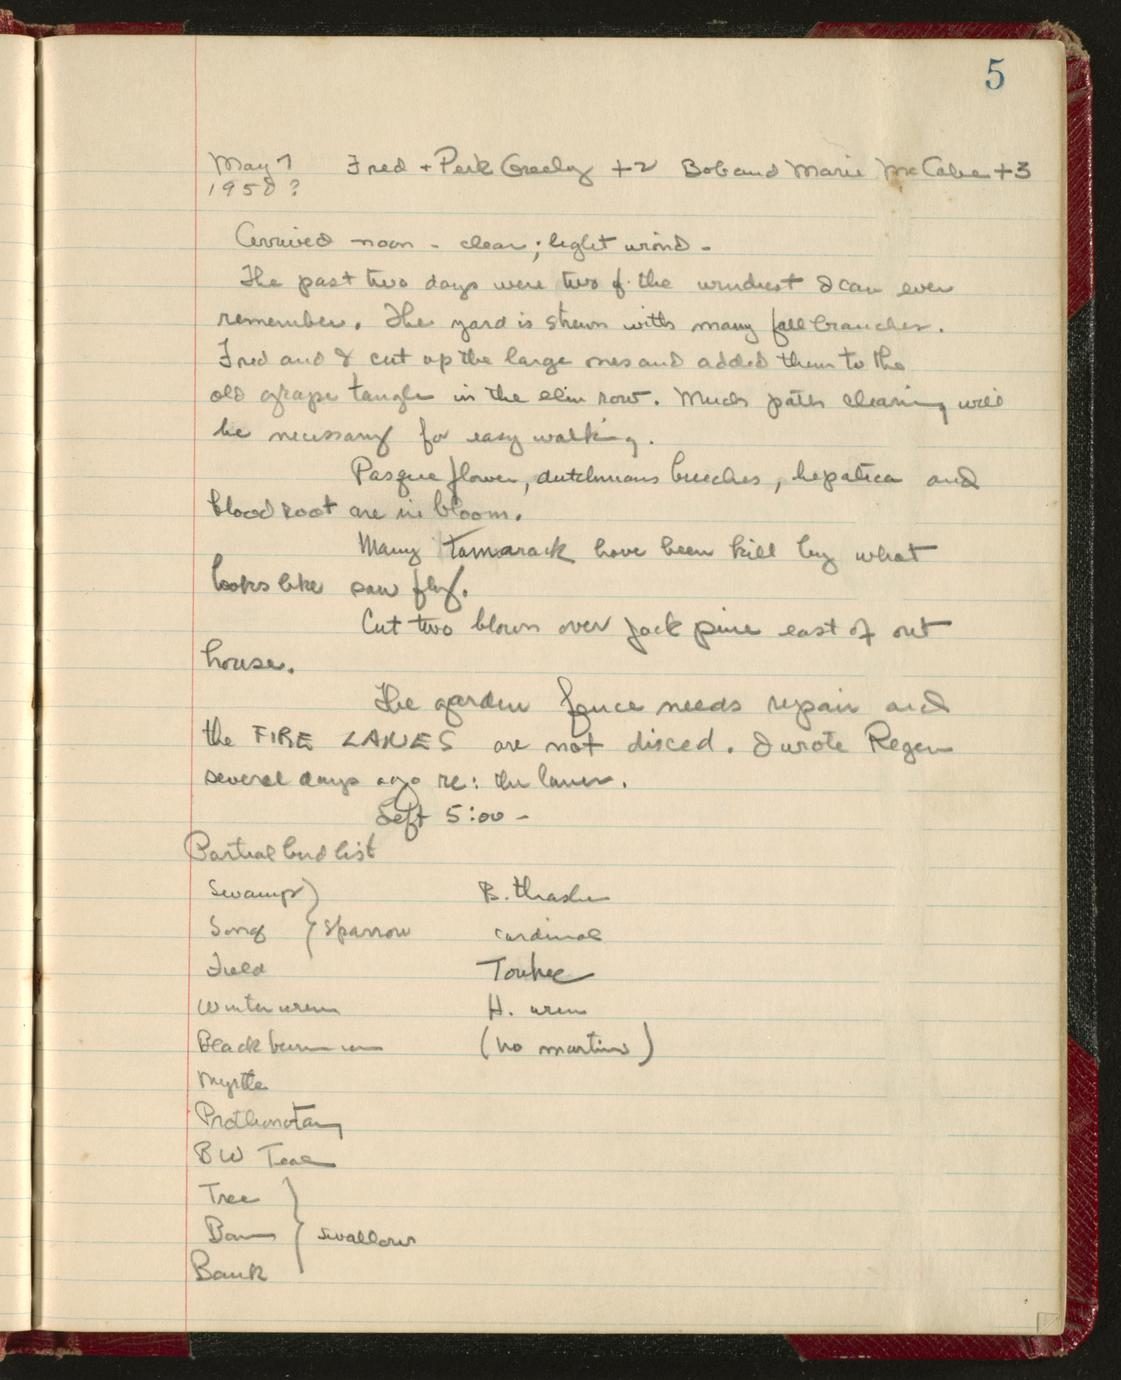 5
May 7 Fred + Peek Greeley +2 Bob and Marie McCabe +3
1958?
Arrived noon - clear; light wind -
The past two days were two of the windiest I can ever
remember. The yard is strewn with many fall branches.
Fred and I cut up the large ones and added them to the
old grape tangle in the elm row. Much path cleaning will
be necessary for easy walking.
Pasque flower, dutchmans breeches, hepatica and
bloodroot are in bloom.
Many tamarack have been kill by what
looks like saw fly.
Cut two blown over jack pine east of out
house.
The garden fence needs repair and
the FIRE LANES are not disced. I wrote Regen
several days ago re: the lanes.
Left 5:00 -
Partial bird list
Swamp } B. thrasher
Song } sparrow cardinal
Field Towhee
Winter wren H. wren
Blackburnian (no martins)
Myrtle
Prothonotary
BW Teal
Tree }
Barn } swallows
Bank